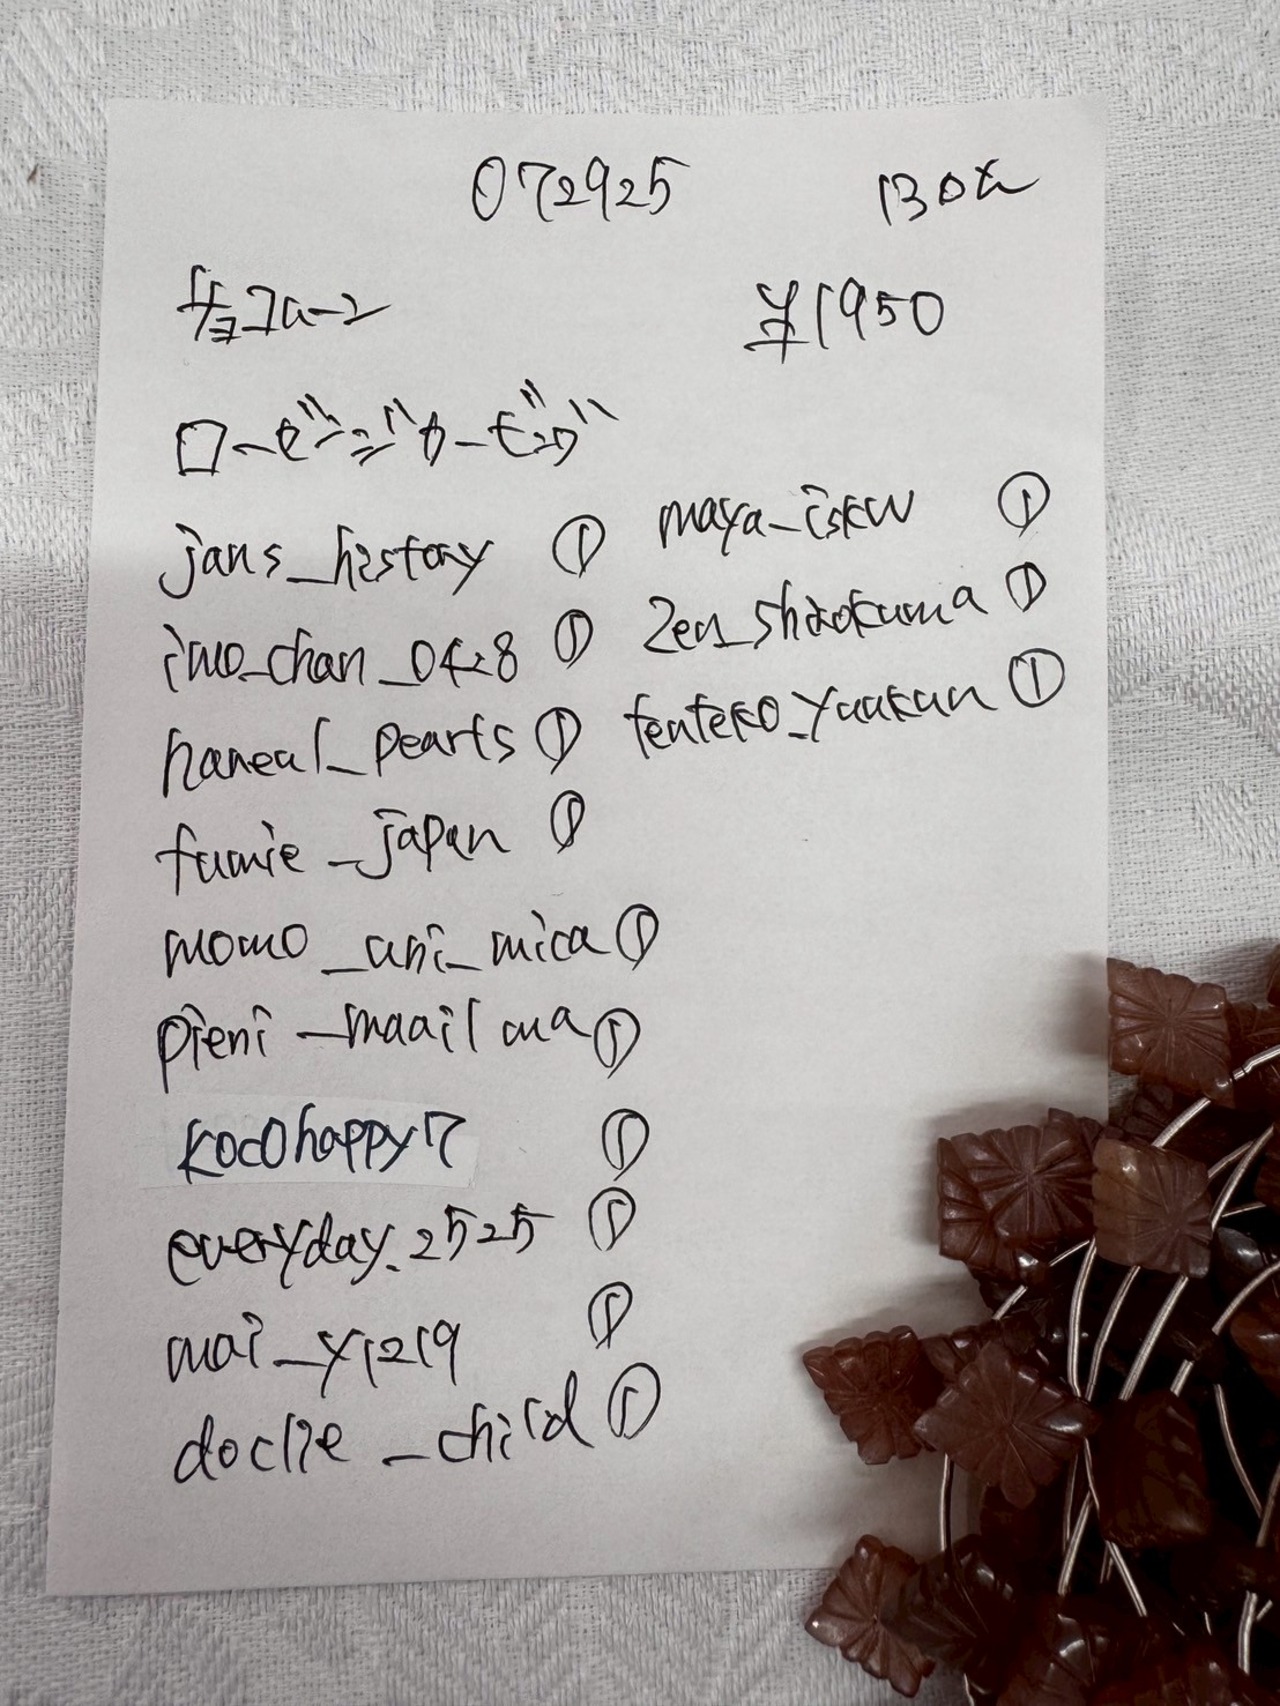 072925 130±
チョコムーン ¥1950
ローズシェルカービング
jans_history ① maya_iskw ①
imo_chan_0428 ① zen_shirokuma ①
haneul_pearls ① tenteko_yuukun ①
fumie_japan ①
momo_uni_mica ①
pieni_maailma ①
kocohappy7 ①
everyday.2525 ①
mai_y1219 ①
doclie_child ①